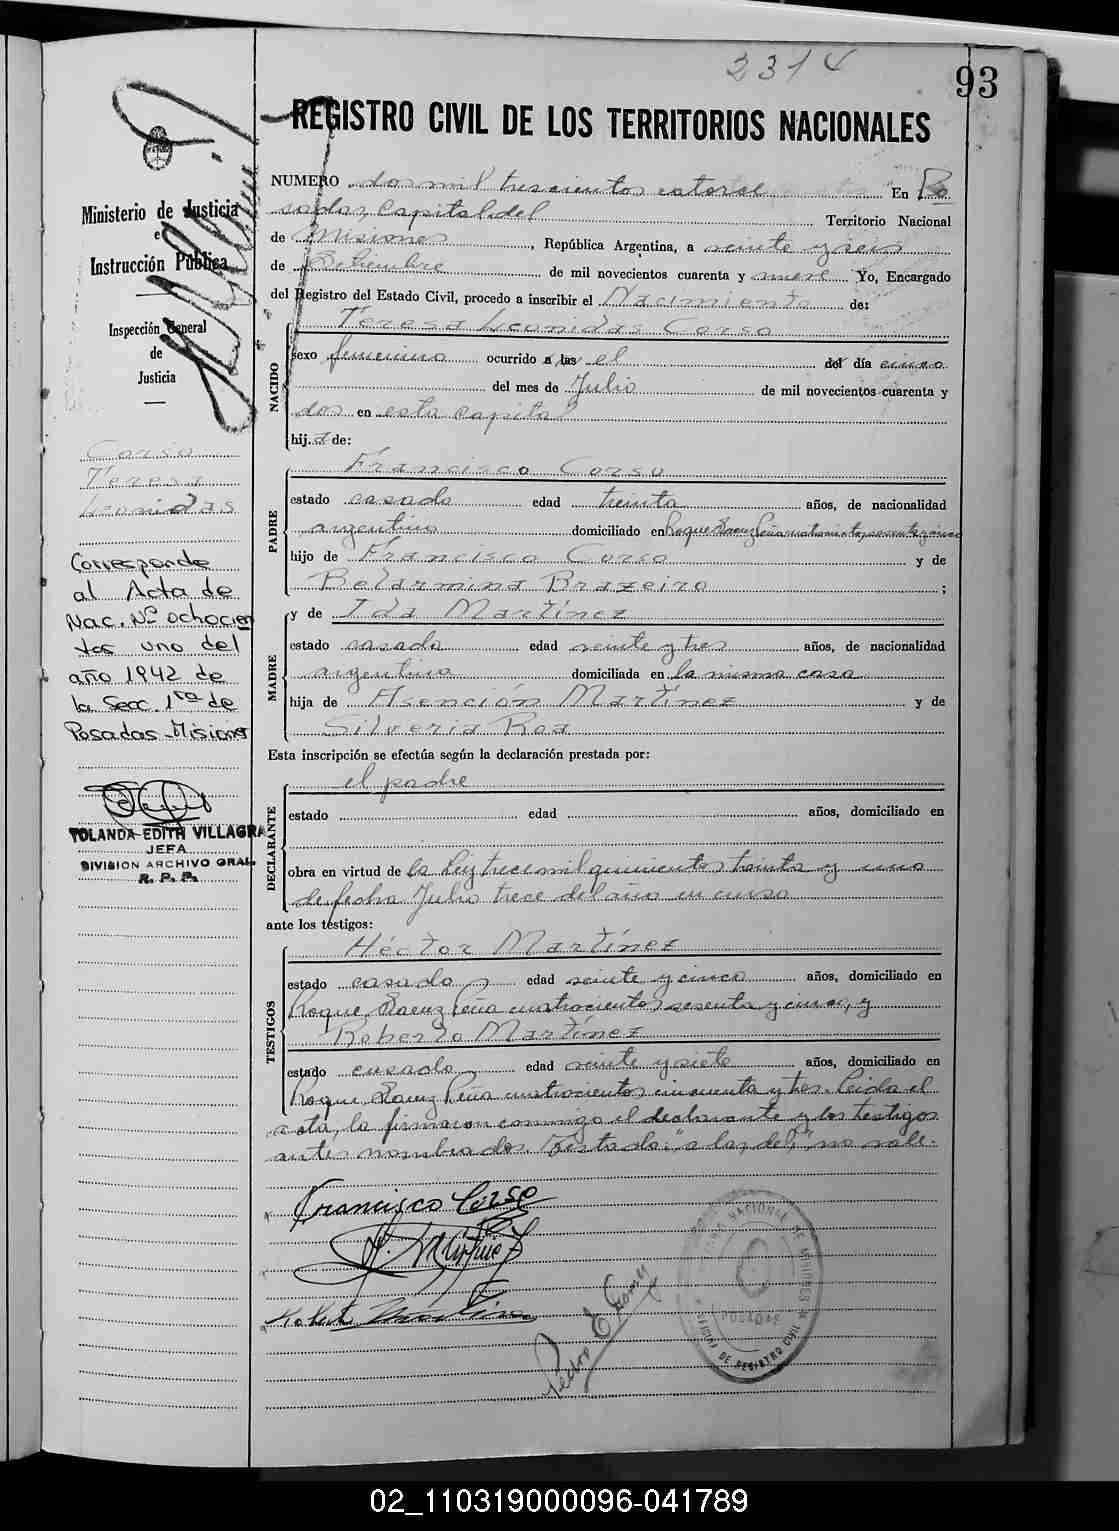 2314
93
REGISTRO CIVIL DE LOS TERRITORIOS NACIONALES
Ministerio de Justicia
e
Instrucción Pública
Inspección General
de
Justicia
Corso
Teresa
Leonidas
Corresponde
al Acta de
Nac. Nº ochocien
tos uno del
año 1942 de
la Secc. 1ra de
Posadas-Misiones
YOLANDA EDITH VILLAGRA
JEFA
DIVISION ARCHIVO GRAL.
R. P. P.
NUMERO dos mil trescientos catorce En Po
sadas, Capital del Territorio Nacional
de Misiones, República Argentina, a veinte y seis
de Setiembre de mil novecientos cuarenta y nueve Yo, Encargado
del Registro del Estado Civil, procedo a inscribir el Nacimiento de:
NACIDO
Teresa Leonidas Corso
sexo femenino ocurrido a las el del día cinco
del mes de Julio de mil novecientos cuarenta y
dos en esta Capital
hij.a de:
PADRE
Francisco Corso
estado casado edad treinta años, de nacionalidad
argentino domiciliado en Roque Saenz Peña cuatrocientos sesenta y cinco
hijo de Francisco Corso y de
Belarmina Brazeiro ;
y de Ida Martínez
MADRE
estado casada edad veinte y tres años, de nacionalidad
argentina domiciliada en la misma casa
hija de Asención Martínez y de
Silveria Roa
Esta inscripción se efectúa según la declaración prestada por:
DECLARANTE
el padre
estado edad años, domiciliado en
obra en virtud de la Ley trece mil quinientos treinta y uno
de fecha Julio trece del año en curso
ante los testigos:
TESTIGOS
Héctor Martínez
estado casado edad veinte y cinco años, domiciliado en
Roque Saenz Peña cuatrocientos sesenta y cinco, y
Roberto Martínez
estado casado edad veinte y siete años, domiciliado en
Roque Saenz Peña cuatrocientos cincuenta y tres. Leida el
acta, la firmaron conmigo el declarante y los testigos
antes nombrados. Testado: "a las, del", no vale.
Francisco Corso
H. Martínez
Roberto Martínez
Pedro E Gomez
POSADAS
DE REGISTRO CIVIL
02_110319000096-041789